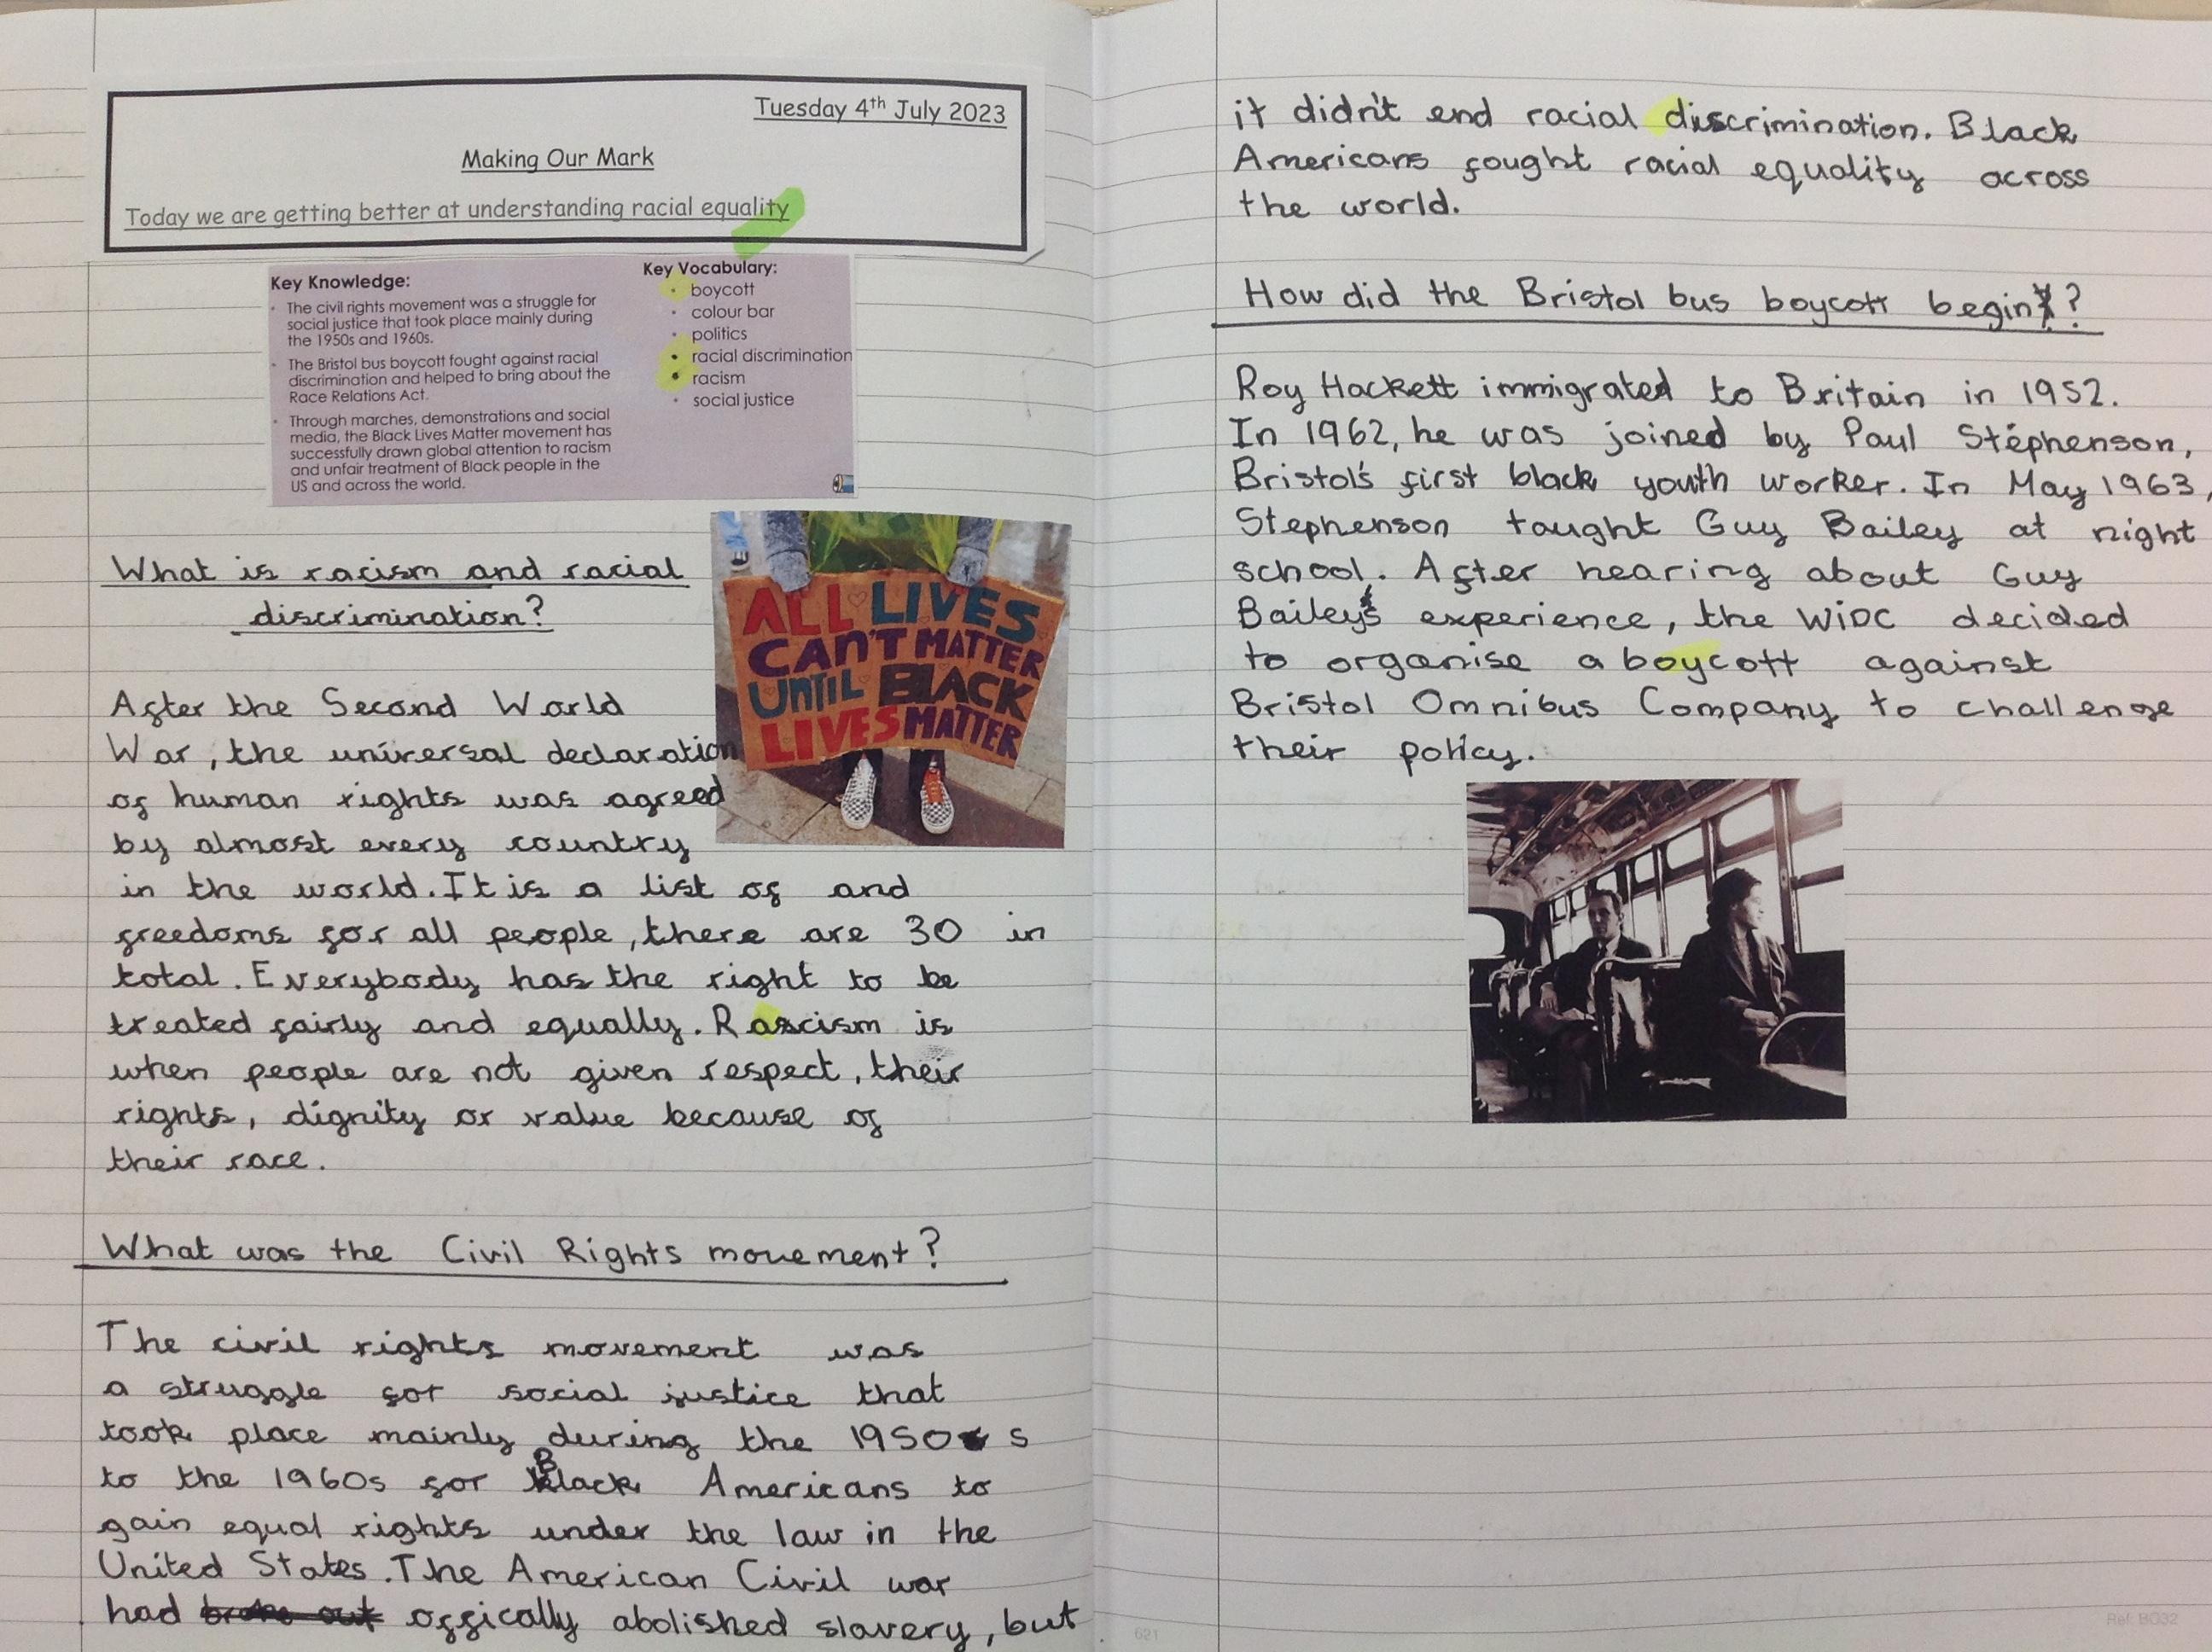 Tuesday 4th July 2023
Making Our Mark
Today we are getting better at understanding racial equality
Key Knowledge:
• The civil rights movement was a struggle for
social justice that took place mainly during
the 1950s and 1960s.
• The Bristol bus boycott fought against racial
discrimination and helped to bring about the
Race Relations Act.
• Through marches, demonstrations and social
media, the Black Lives Matter movement has
successfully drawn global attention to racism
and unfair treatment of Black people in the
US and across the world.
Key Vocabulary:
• boycott
• colour bar
• politics
• racial discrimination
• racism
• social justice
What is racism and racial
discrimination?
ALL LIVES
CAN'T MATTER
UNTIL BLACK
LIVES MATTER
After the Second World
War, the universal declaration
of human rights was agreed
by almost every country
in the world. It is a list of and
freedoms for all people, there are 30 in
total. Everybody has the right to be
treated fairly and equally. Rascism is
when people are not given respect, their
rights, dignity or value because of
their race.
What was the Civil Rights movement?
The civil rights movement was
a struggle for social justice that
took place mainly during the 1950s
to the 1960s for Black Americans to
gain equal rights under the law in the
United States. The American Civil war
had broke out offically abolished slavery, but
it didn't end racial discrimination. Black
Americans fought racial equality across
the world.
How did the Bristol bus boycott begin?
Roy Hackett immigrated to Britain in 1952.
In 1962, he was joined by Paul Stephenson,
Bristol's first black youth worker. In May 1963,
Stephenson taught Guy Bailey at night
school. After hearing about Guy
Bailey's experience, the WIDC decided
to organise a boycott against
Bristol Omnibus Company to challenge
their policy.
621
Ref: BG32